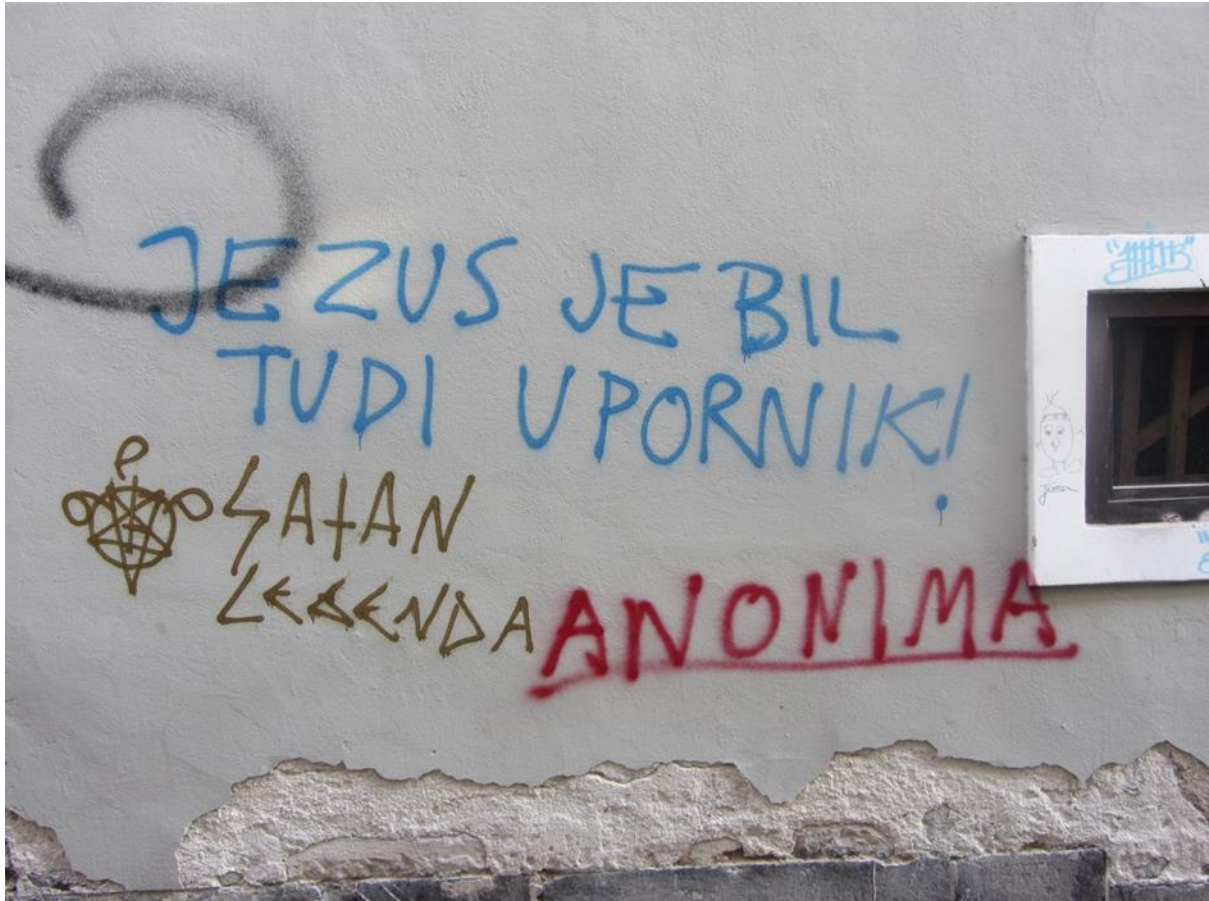 JEZUS JE BIL
TUDI UPORNIK!
SATAN
LEGENDA
ANONIMA